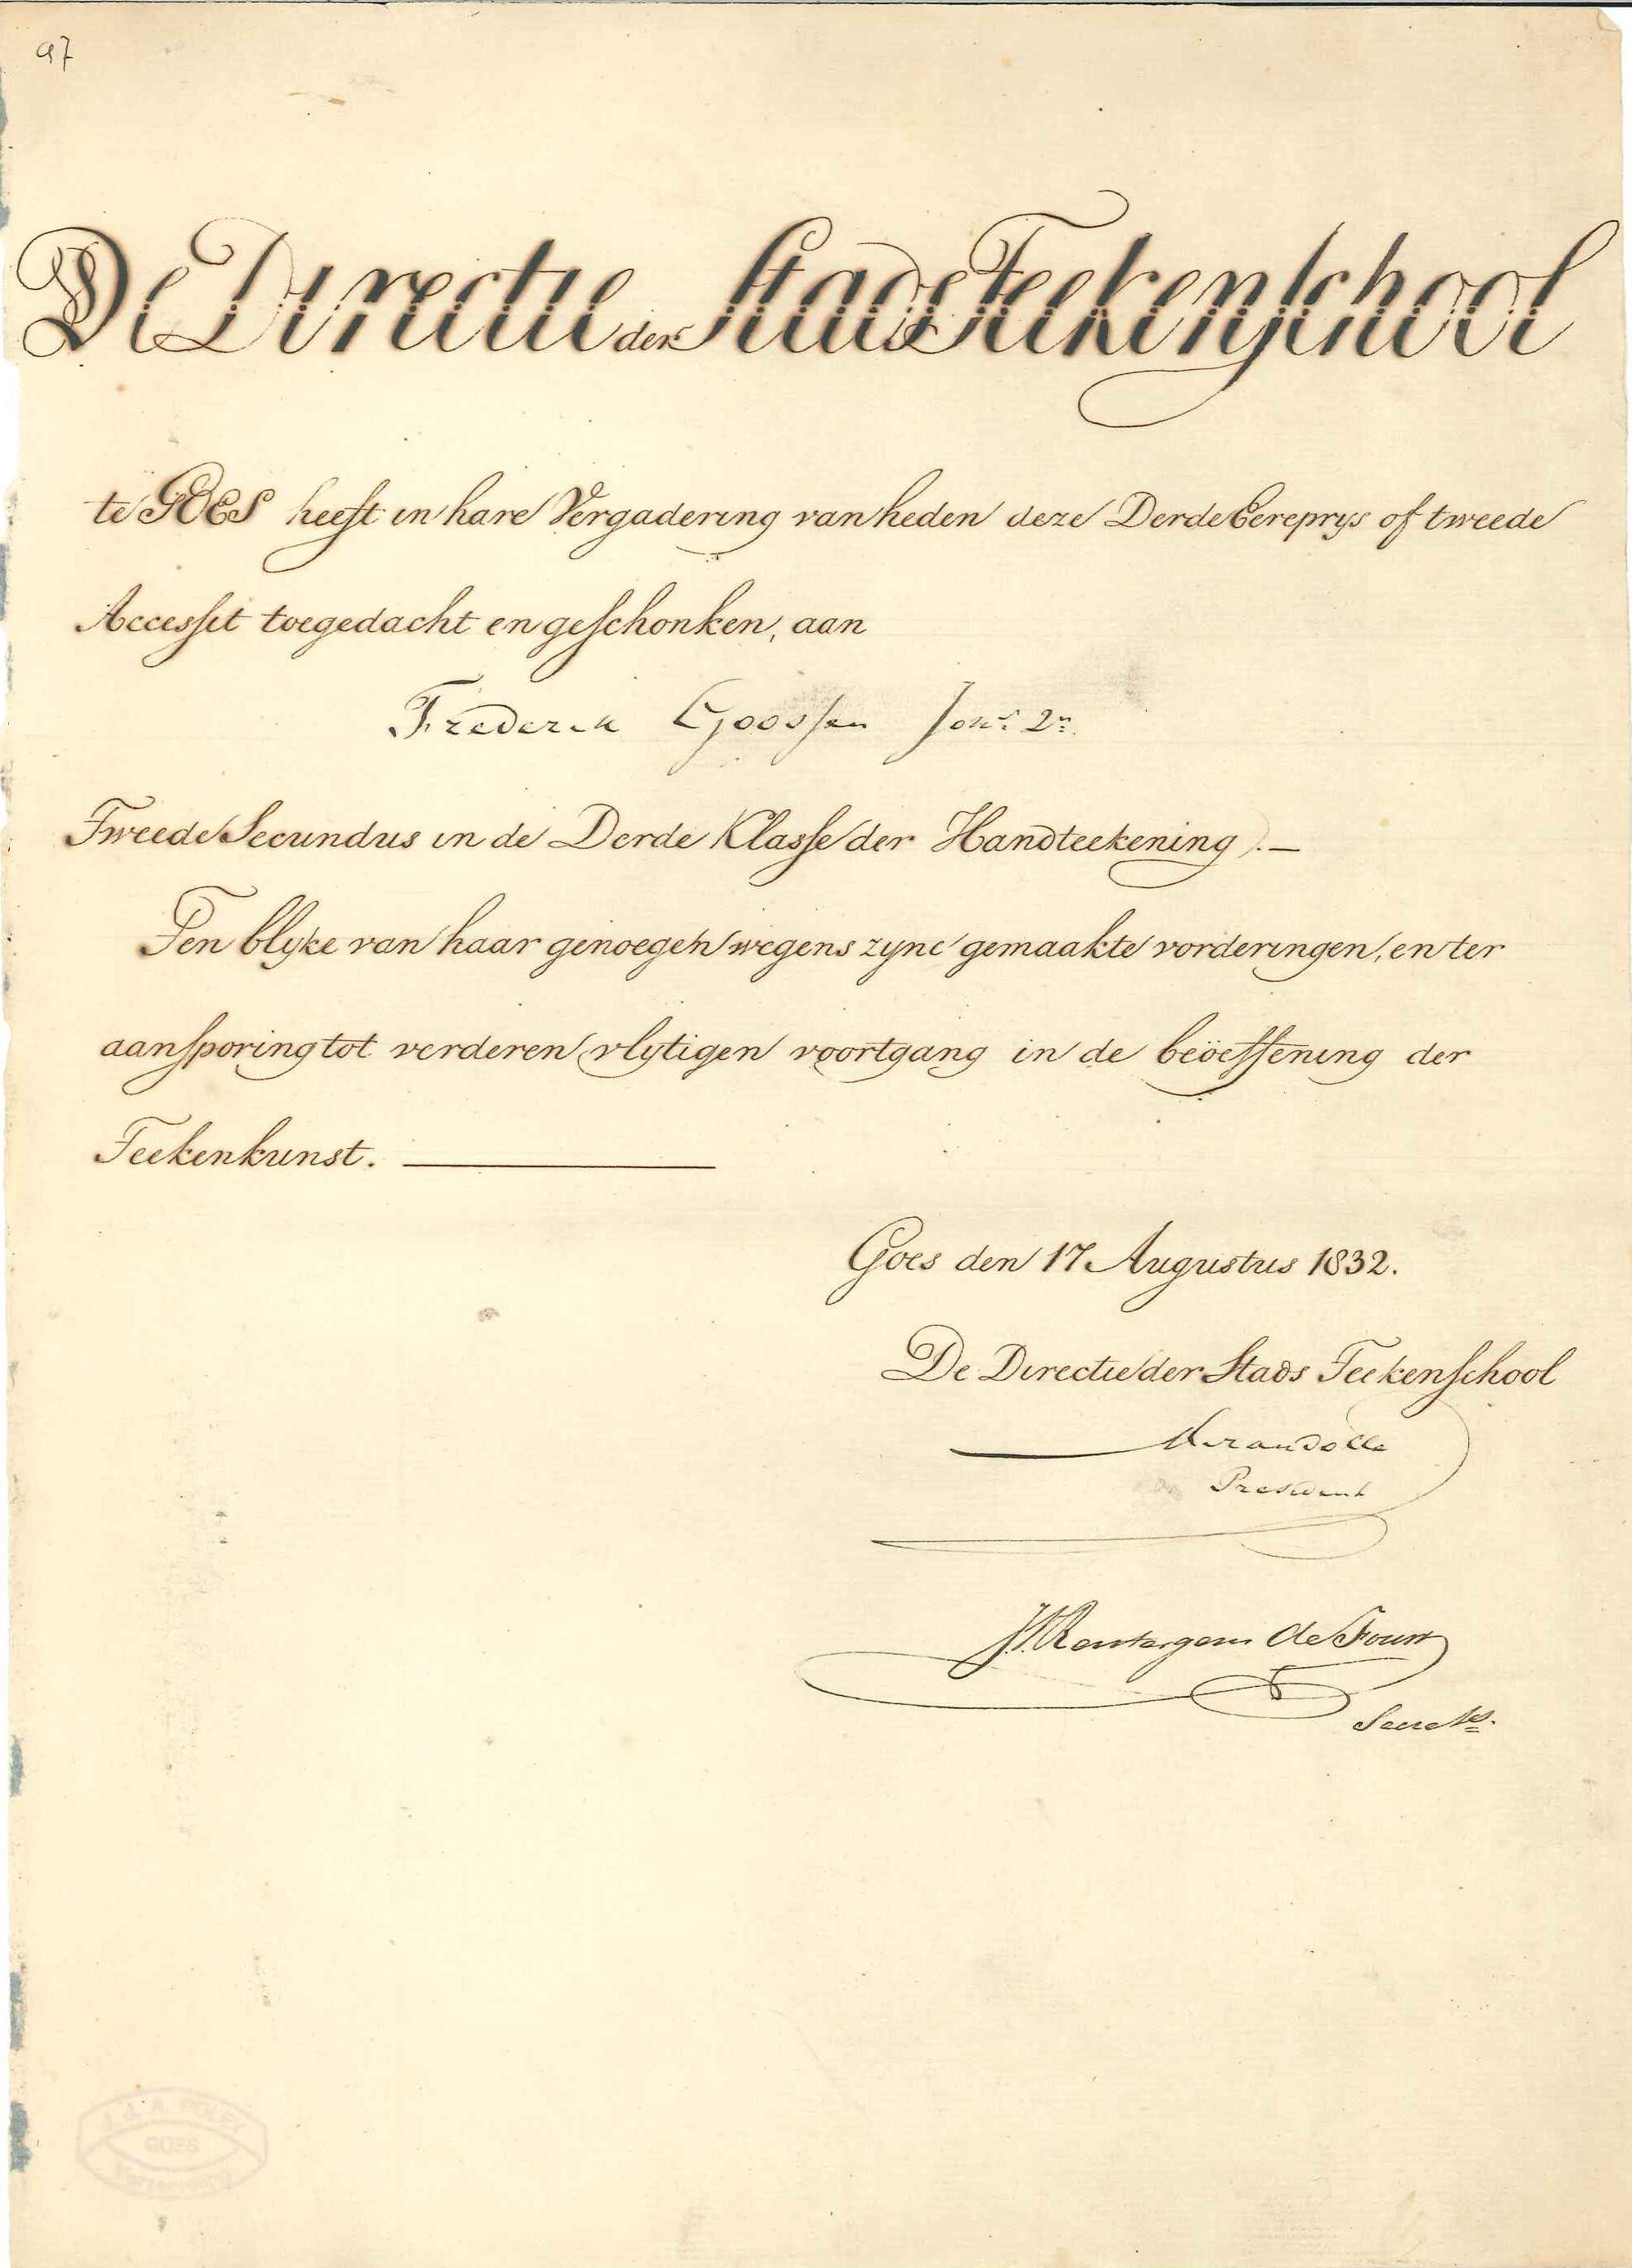 97
De Directie der Stads Teekenschool
te GOES heeft in hare Vergadering van heden deze Derde Eereprys of tweede
Accessit toegedacht en geschonken, aan
Frederik Goossen Jonr. 2n.
Tweede Secundus in de Derde Klasse der Handteekening.—
Ten blyke van haar genoegen wegens zyne gemaakte vorderingen, en ter
aansporing tot verderen vlytigen voortgang in de beöeffening der
Teekenkunst.
Goes den 17 Augustus 1832.
De Directie der Stads Teekenschool
President
de Fouw
Secrets.
GOES